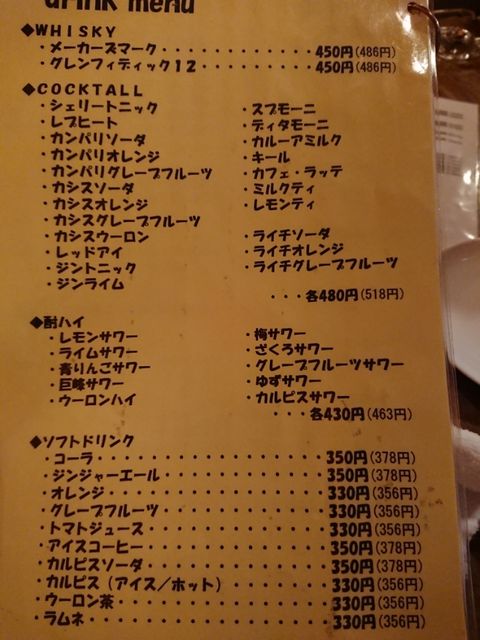 drink menu
◆WHISKY
・メーカーズマーク・・・・・・・・・・・450円(486円)
・グレンフィディック12・・・・・・・・450円(486円)
◆COCKTALL
・シェリートニック
・レブヒート
・カンパリソーダ
・カンパリオレンジ
・カンパリグレープフルーツ
・カシスソーダ
・カシスオレンジ
・カシスグレープフルーツ
・カシスウーロン
・レッドアイ
・ジントニック
・ジンライム
・スプモーニ
・ディタモーニ
・カルーアミルク
・キール
・カフェ・ラッテ
・ミルクティ
・レモンティ
・ライチソーダ
・ライチオレンジ
・ライチグレープフルーツ
・・・各480円(518円)
◆酎ハイ
・レモンサワー
・ライムサワー
・青りんごサワー
・巨峰サワー
・ウーロンハイ
・梅サワー
・ざくろサワー
・グレープフルーツサワー
・ゆずサワー
・カルピスサワー
・・・各430円(463円)
◆ソフトドリンク
・コーラ・・・・・・・・・・・・・・・350円(378円)
・ジンジャーエール・・・・・・・・・・350円(378円)
・オレンジ・・・・・・・・・・・・・・330円(356円)
・グレープフルーツ・・・・・・・・・・330円(356円)
・トマトジュース・・・・・・・・・・・330円(356円)
・アイスコーヒー・・・・・・・・・・・350円(378円)
・カルピスソーダ・・・・・・・・・・・350円(378円)
・カルピス(アイス/ホット)・・・・・・330円(356円)
・ウーロン茶・・・・・・・・・・・・・330円(356円)
・ラムネ・・・・・・・・・・・・・・・330円(356円)